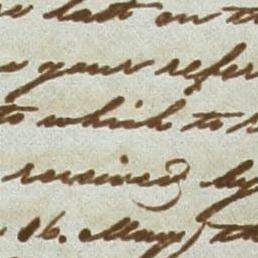 last on th
your refer
to which to
received by
16. May) th